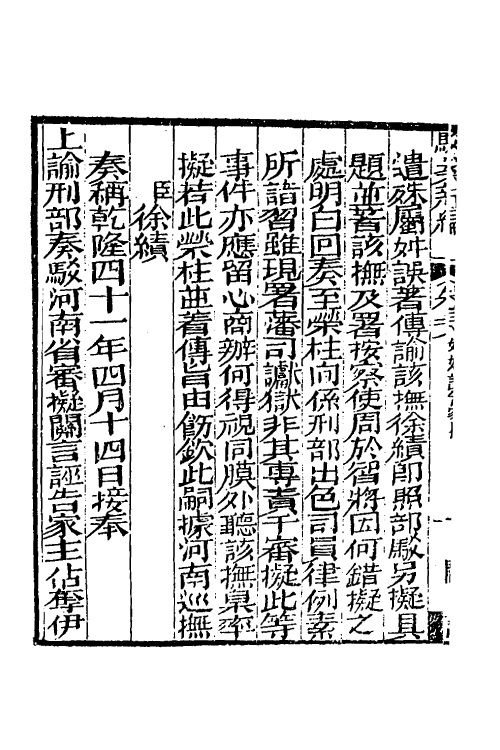 遣殊屬舛誤著傳諭該撫徐績即照部駁另擬具
題並著該撫及署按察使周於智將因何錯擬之
處明白回奏至榮柱向係刑部出色司員律例素
所諳習雖現署藩司讞獄非其專責于審擬此等
事件亦應留心商辦何得視同膜外聽該撫臬率
擬若此榮柱並着傳旨申飭欽此嗣據河南巡撫
臣徐績
奏稱乾隆四十一年四月十四日接奉
上諭刑部奏駁河南省審擬關言誣告家主佔奪伊